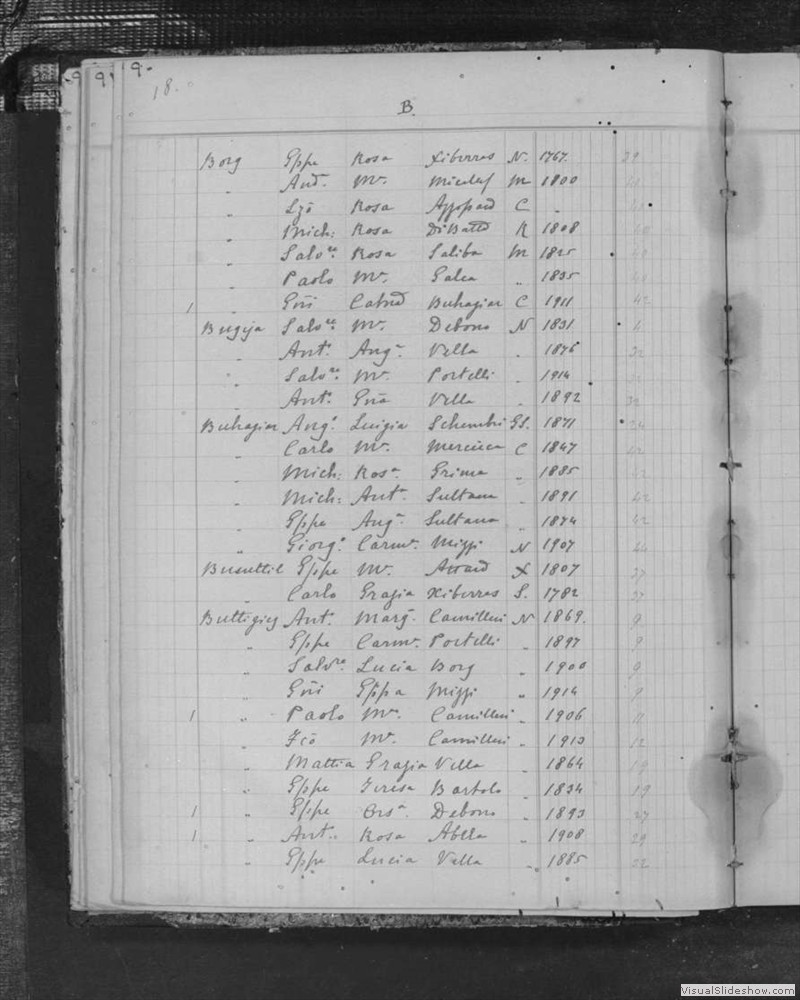 9 9 9.
18.
B.
Borg Gppe Rosa Xiberras N. 1767. 39
„ And. Mª. Micalef M 1800
„ Lzō Rosa Appapard C „
„ Mich: Rosa DiBattª R 1808 40
„ Salvre. Rosa Saliba M 1825 40
„ Paolo Mª. Galea „ 1835 40
1 „ Gñi Catnª Buhagiar C 1911 42
Bugeja Salvre. Mª. Debono N 1831 11
„ Antº. Angª Vella „ 1876 32
„ Salvre. Mª. Portelli „ 1914 32
„ Antº. Gña Vella „ 1892 32
Buhagiar Angº. Luigia Schembri GS. 1871 24
„ Carlo Mª. Mercieca C 1847 42
„ Mich: Rosª. Grima „ 1885 42
„ Mich: Antª. Sultana „ 1891 42
„ Gppe Angª Sultana „ 1874 42
„ Giorgº. Carmª. Mizzi N 1907 44
Busuttil Gppe Mª. Attard X 1807 27
„ Carlo Grazia Xiberras S. 1782 27
Buttigieg Antº. Margª. Camilleri N 1869. 9
„ Gppe Carmª. Portelli „ 1897 9
„ Salvre Lucia Borg „ 1900 9
„ Gñi Gppa Mizzi „ 1914 9
1 „ Paolo Mª. Camilleri „ 1906 11
„ Fcō Mª. Camilleri „ 1913 12
„ Mattia Grazia Vella „ 1864 19
„ Gppe Teresa Bartolo „ 1834 19
1 „ Gppe Orsª. Debono „ 1893 27
1 „ Antº. Rosa Abela „ 1908 29
„ Gppe Lucia Vella „ 1885 22
VisualSlideshow.com